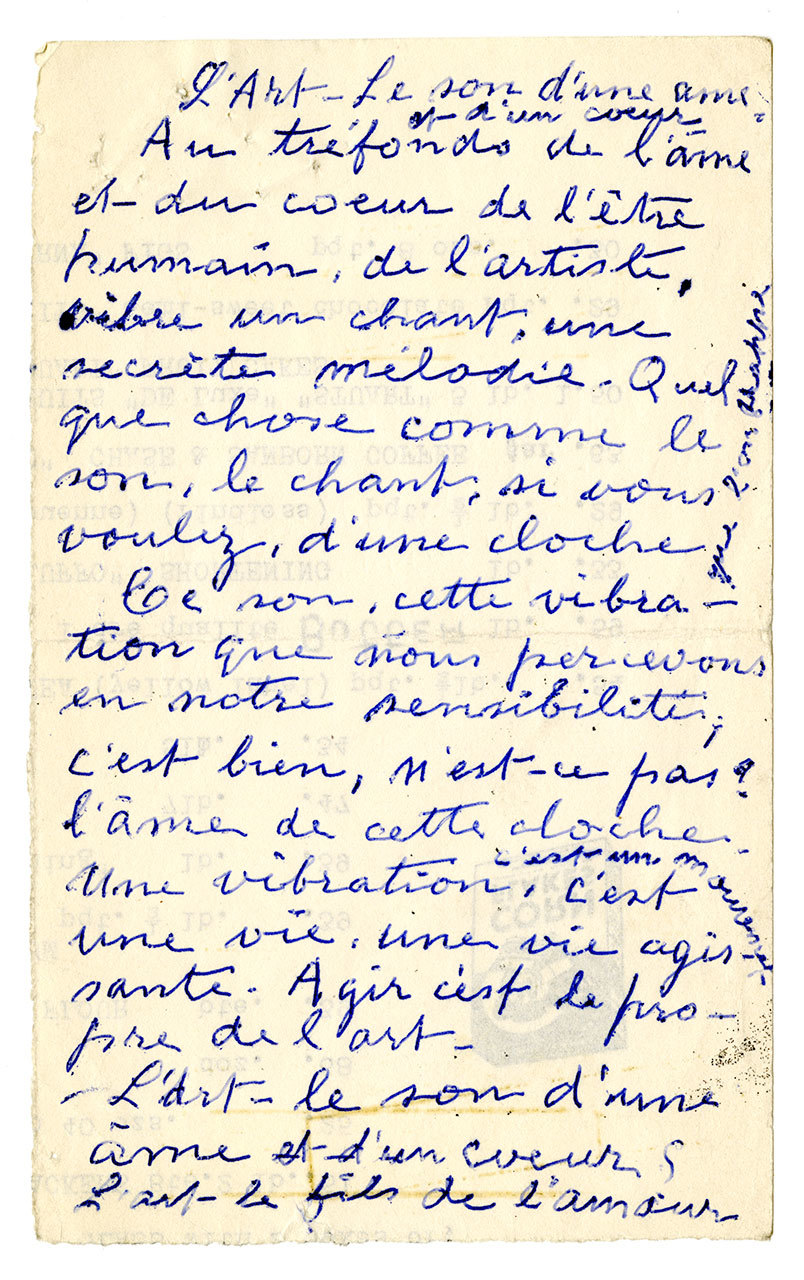 L'Art - Le son d'une ame
et d'un coeur
Au tréfonds de l'âme
et du coeur de l'être
humain, de l'artiste,
vibre un chant, une
secrète mélodie. Quel
que chose comme le
son, le chant, si vous
voulez, d'une cloche
que l'on
Ce son, cette vibra-
tion que nous percevons
en notre sensibilité,
c'est bien, n'est-ce pas?
l'âme de cette cloche.
c'est un mouvement
Une vibration, c'est
une vie, une vie agis
sante. Agir c'est le pro-
pre de l'art -
- L'Art - le son d'une
âme et d'un coeur,
L'art le fils de l'amour